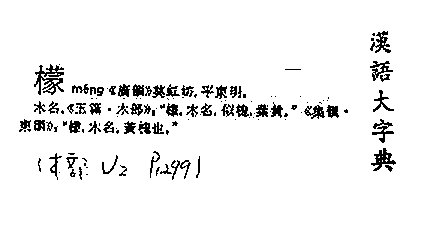 漢語大字典
檬 méng《廣韻》莫紅切,平東明。
木名。《玉篇·木部》:“檬,木名,似槐,葉黄。”《集韻·
東韻》:“檬,木名,黃槐也。”
(木部 V2 P.1299)